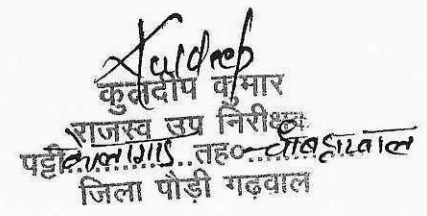 Kuldeep
कुलदीप कुमार
राजस्व उप निरीक्षक
पट्टी कोलागाड तह० चौबट्टाखाल
जिला पौड़ी गढ़वाल